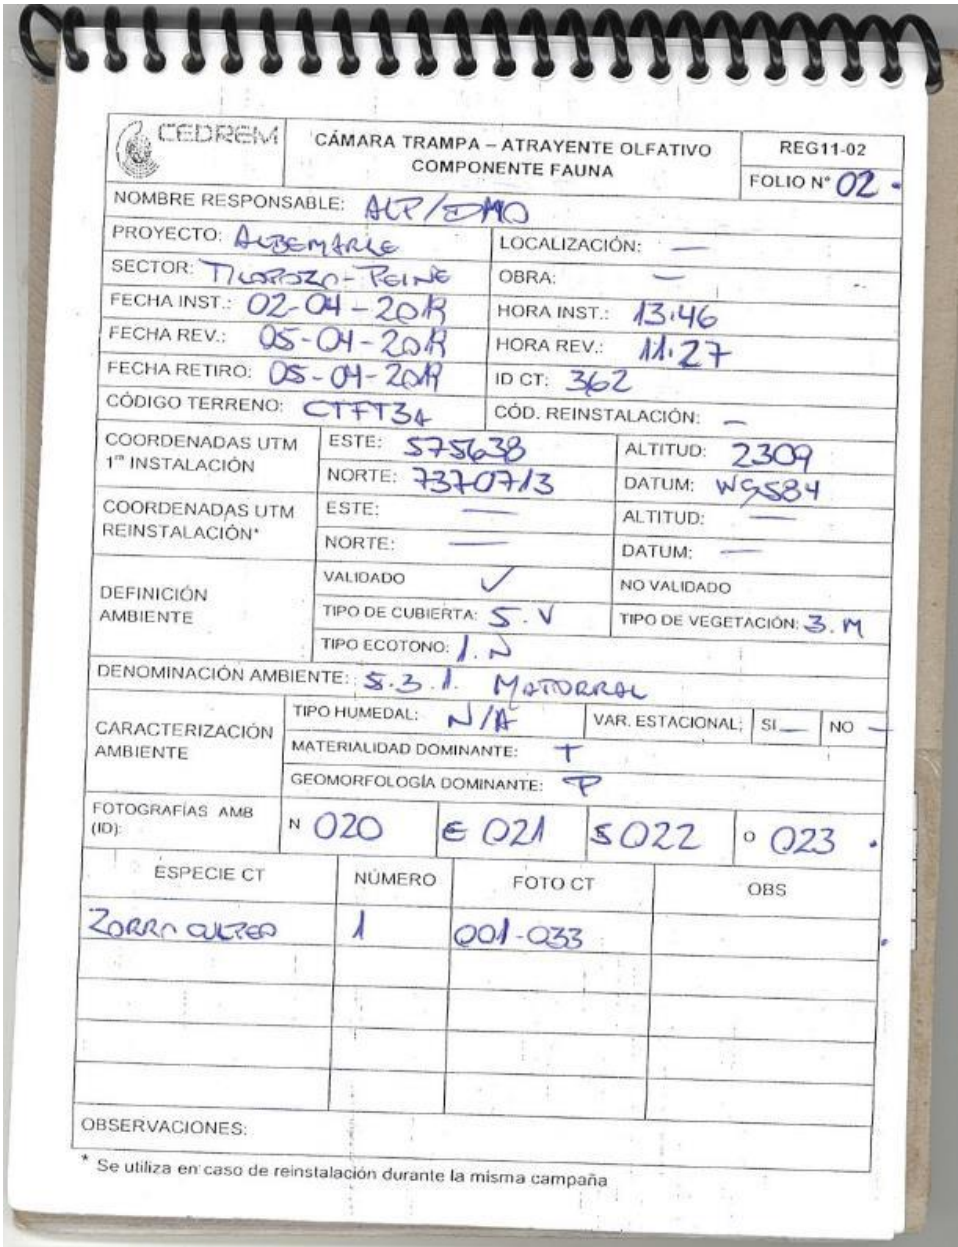 CEDREM
CÁMARA TRAMPA – ATRAYENTE OLFATIVO
COMPONENTE FAUNA
REG11-02
FOLIO N° 02
NOMBRE RESPONSABLE: ALP/DMO
PROYECTO: ALBEMARLE
LOCALIZACIÓN: —
SECTOR: TILOPOZO-PEINE
OBRA: —
FECHA INST.: 02-04-2019
HORA INST.: 13:46
FECHA REV.: 05-04-2019
HORA REV.: 11:27
FECHA RETIRO: 05-04-2019
ID CT: 362
CÓDIGO TERRENO: CTFT3A
CÓD. REINSTALACIÓN: —
COORDENADAS UTM
1ra INSTALACIÓN
ESTE: 575638
ALTITUD: 2309
NORTE: 7370713
DATUM: WGS84
COORDENADAS UTM
REINSTALACIÓN*
ESTE: —
ALTITUD: —
NORTE: —
DATUM: —
DEFINICIÓN
AMBIENTE
VALIDADO ✓
NO VALIDADO
TIPO DE CUBIERTA: 5. V
TIPO DE VEGETACIÓN: 3. M
TIPO ECOTONO: 1. N
DENOMINACIÓN AMBIENTE: 5.3.1. MATORRAL
CARACTERIZACIÓN
AMBIENTE
TIPO HUMEDAL: N/A
VAR. ESTACIONAL: SI — NO —
MATERIALIDAD DOMINANTE: T
GEOMORFOLOGÍA DOMINANTE: P
FOTOGRAFÍAS AMB
(ID):
N 020 E 021 S 022 O 023
ESPECIE CT NÚMERO FOTO CT OBS
ZORRO CULPEO 1 001-033
OBSERVACIONES:
* Se utiliza en caso de reinstalación durante la misma campaña